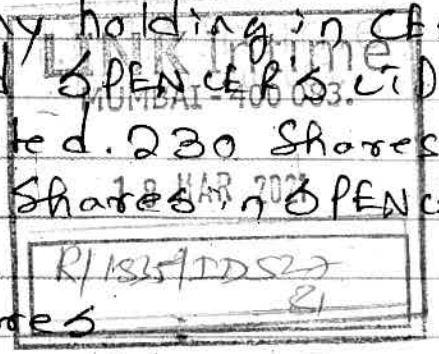 y holding in CE
LINK Intime
SPENCERS LTD
MUMBAI - 400 083.
ted. 230 Shares
18 MAR 2021
Shares in SPENC
res